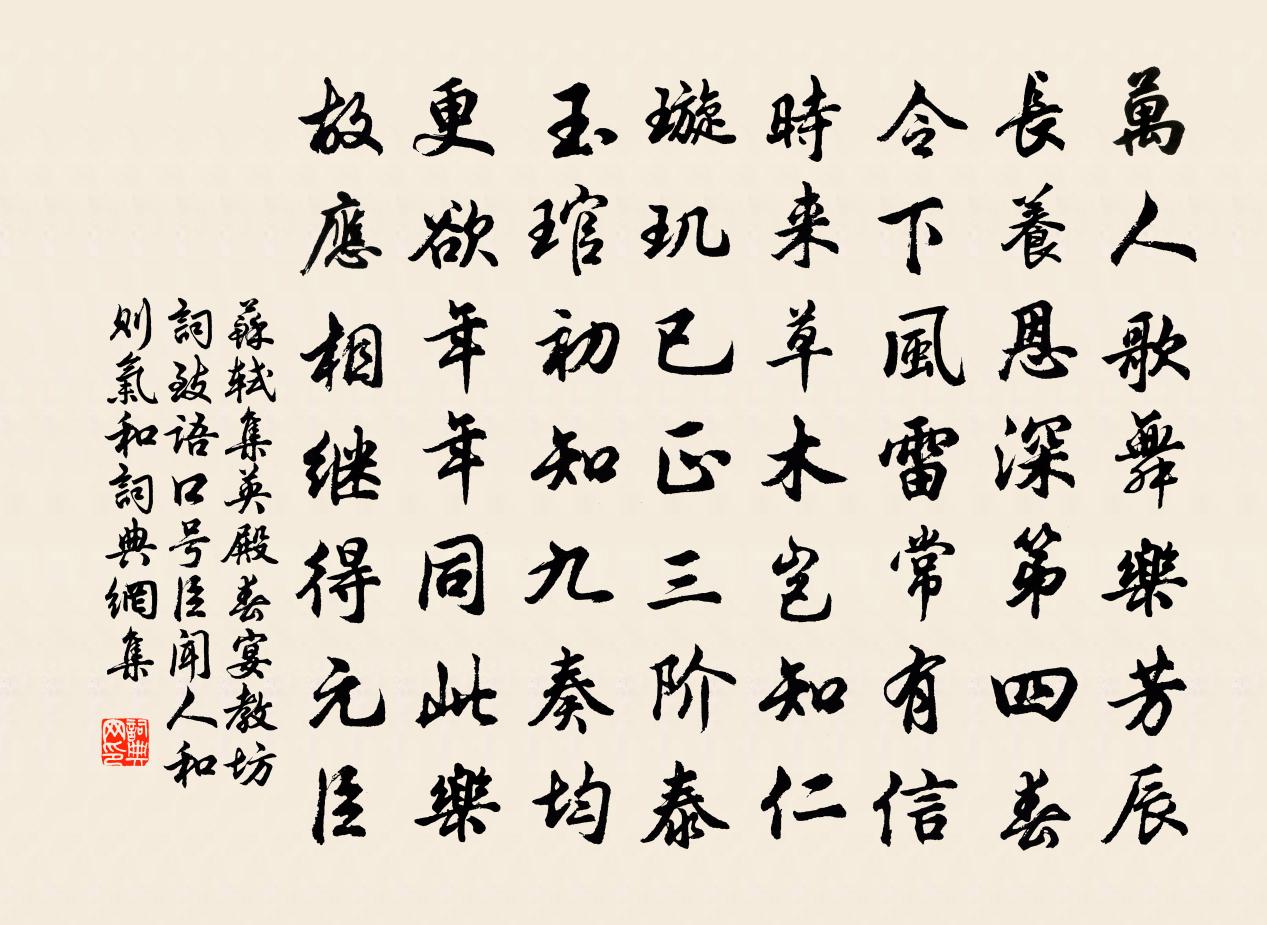 萬人歌舞樂芳辰
長養恩深第四春
令下風雷常有信
時来草木豈知仁
璇玑已正三阶泰
玉琯初知九奏均
更欲年年同此樂
故應相继得元臣
蘇軾集英殿春宴教坊
詞致語口号臣聞人和
则氣和詞典網集
詞典网印